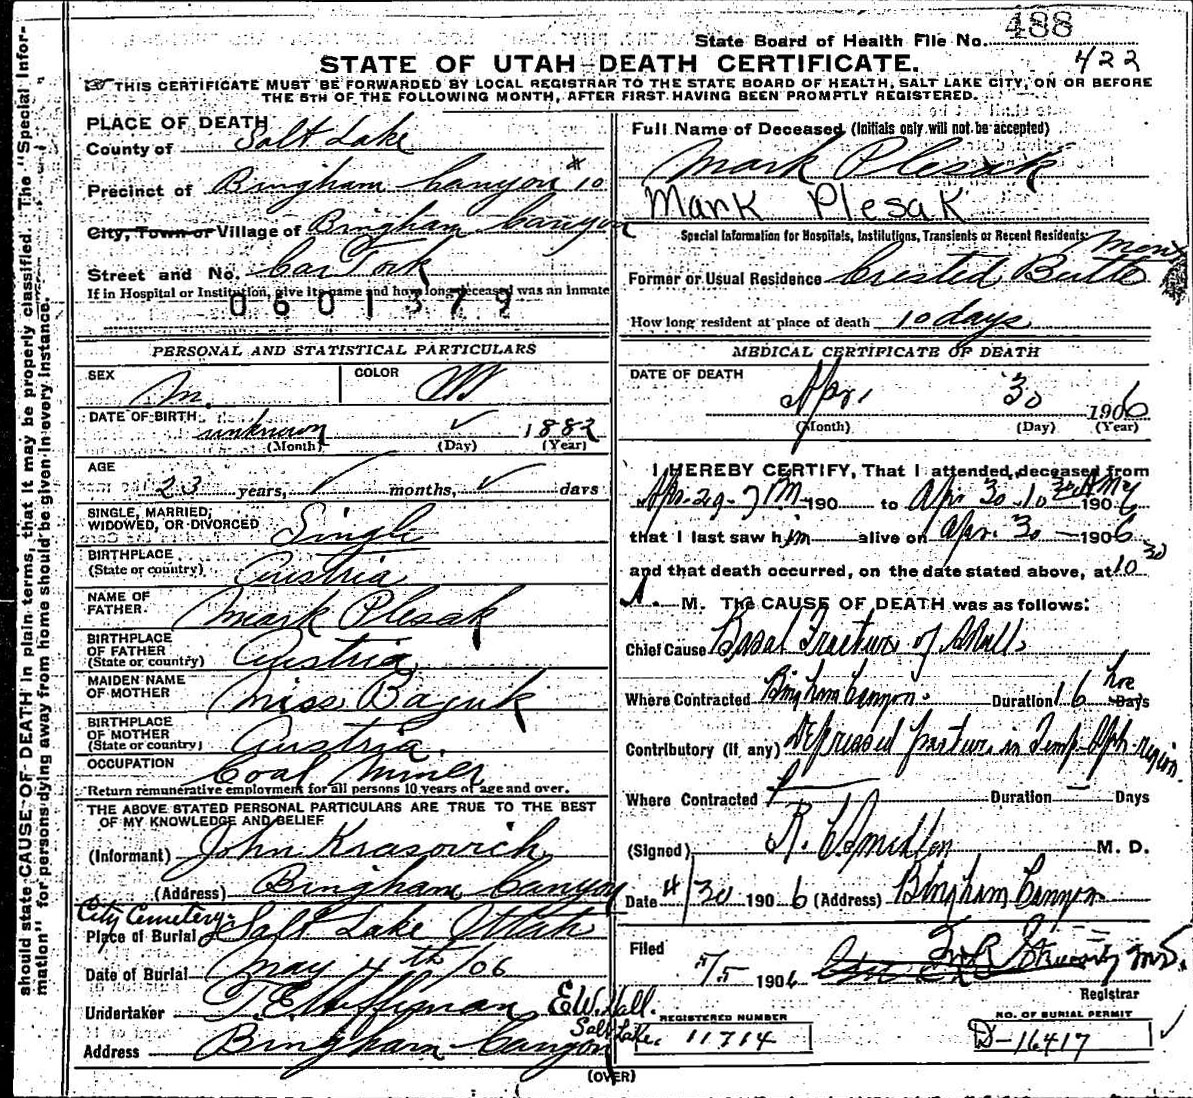 488
State Board of Health File No.
422
STATE OF UTAH—DEATH CERTIFICATE.
THIS CERTIFICATE MUST BE FORWARDED BY LOCAL REGISTRAR TO THE STATE BOARD OF HEALTH, SALT LAKE CITY, ON OR BEFORE
THE 5TH OF THE FOLLOWING MONTH, AFTER FIRST HAVING BEEN PROMPTLY REGISTERED.
should state CAUSE OF DEATH in plain terms, that it may be properly classified. The "Special Infor-
mation" for persons dying away from home should be given in every instance.
PLACE OF DEATH
County of Salt Lake
Precinct of Bingham Canyon #10
City, Town or Village of Bingham Canyon
Street and No. Car Fork
If in Hospital or Institution, give its name and how long deceased was an inmate
0601379
PERSONAL AND STATISTICAL PARTICULARS
SEX M. COLOR W
DATE OF BIRTH unknown ✓ 1882
(Month) (Day) (Year)
AGE
23 years, ✓ months, ✓ days
SINGLE, MARRIED,
WIDOWED, OR DIVORCED Single
BIRTHPLACE
(State or country) Austria
NAME OF
FATHER Mark Plesak
BIRTHPLACE
OF FATHER
(State or country) Austria
MAIDEN NAME
OF MOTHER Miss Baguk
BIRTHPLACE
OF MOTHER
(State or country) Austria.
OCCUPATION Coal Miner
Return remunerative employment for all persons 10 years of age and over.
THE ABOVE STATED PERSONAL PARTICULARS ARE TRUE TO THE BEST
OF MY KNOWLEDGE AND BELIEF
(Informant) John Krasovich
(Address) Bingham Canyon
City Cemetery
Place of Burial Salt Lake Utah
Date of Burial May 4th/06
Undertaker E.W. Hall.
Salt Lake.
Address Bingham Canyon
Full Name of Deceased (Initials only will not be accepted)
Mark Plesak
Mark Plesak
Special Information for Hospitals, Institutions, Transients or Recent Residents:
Former or Usual Residence Crested Butte Mont
How long resident at place of death 10 days
MEDICAL CERTIFICATE OF DEATH
DATE OF DEATH
Apr. 30 1906
(Month) (Day) (Year)
I HEREBY CERTIFY, That I attended deceased from
Apr. 29 - 7 PM 190 to Apr 30 10 30 AM 1906
that I last saw him alive on Apr. 30 — 1906
and that death occurred, on the date stated above, at 10 30
A. M. The CAUSE OF DEATH was as follows:
Chief Cause Basal Fracture of Skull
Where Contracted Bingham Canyon. Duration 16 hrs Days
Contributory (if any) Depressed fracture in Temp-Sph-region.
Where Contracted Duration — Days
(Signed) M. D.
Date 4/30 1906 (Address) Bingham Canyon
Filed 5/5 1906 M.D.
Registrar
REGISTERED NUMBER
11714
NO. OF BURIAL PERMIT
D-16417
(OVER)